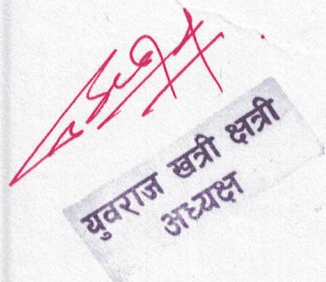 युवराज खत्री क्षत्री
अध्यक्ष